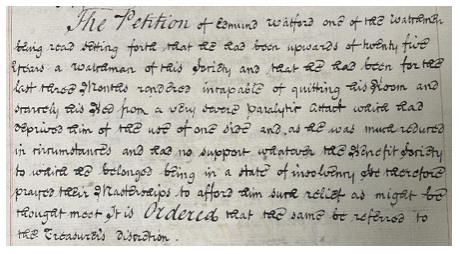 The Petition of Edmund Watford one of the Watchmen
being read setting forth that he had been upwards of twenty five
Years a Watchman of this Society and that he had been for the
last three Months rendered incapable of quitting his Room and
scarcely his Bed from a very severe Paralytic Attack which had
deprived him of the use of one side and as he was much reduced
in circumstances and had no support whatever the Benefit Society
to which he belonged being in a state of insolvency he therefore
prayed their Masterships to afford him such relief as might be
thought meet It is Ordered that the same be referred to
the Treasurer's discretion.